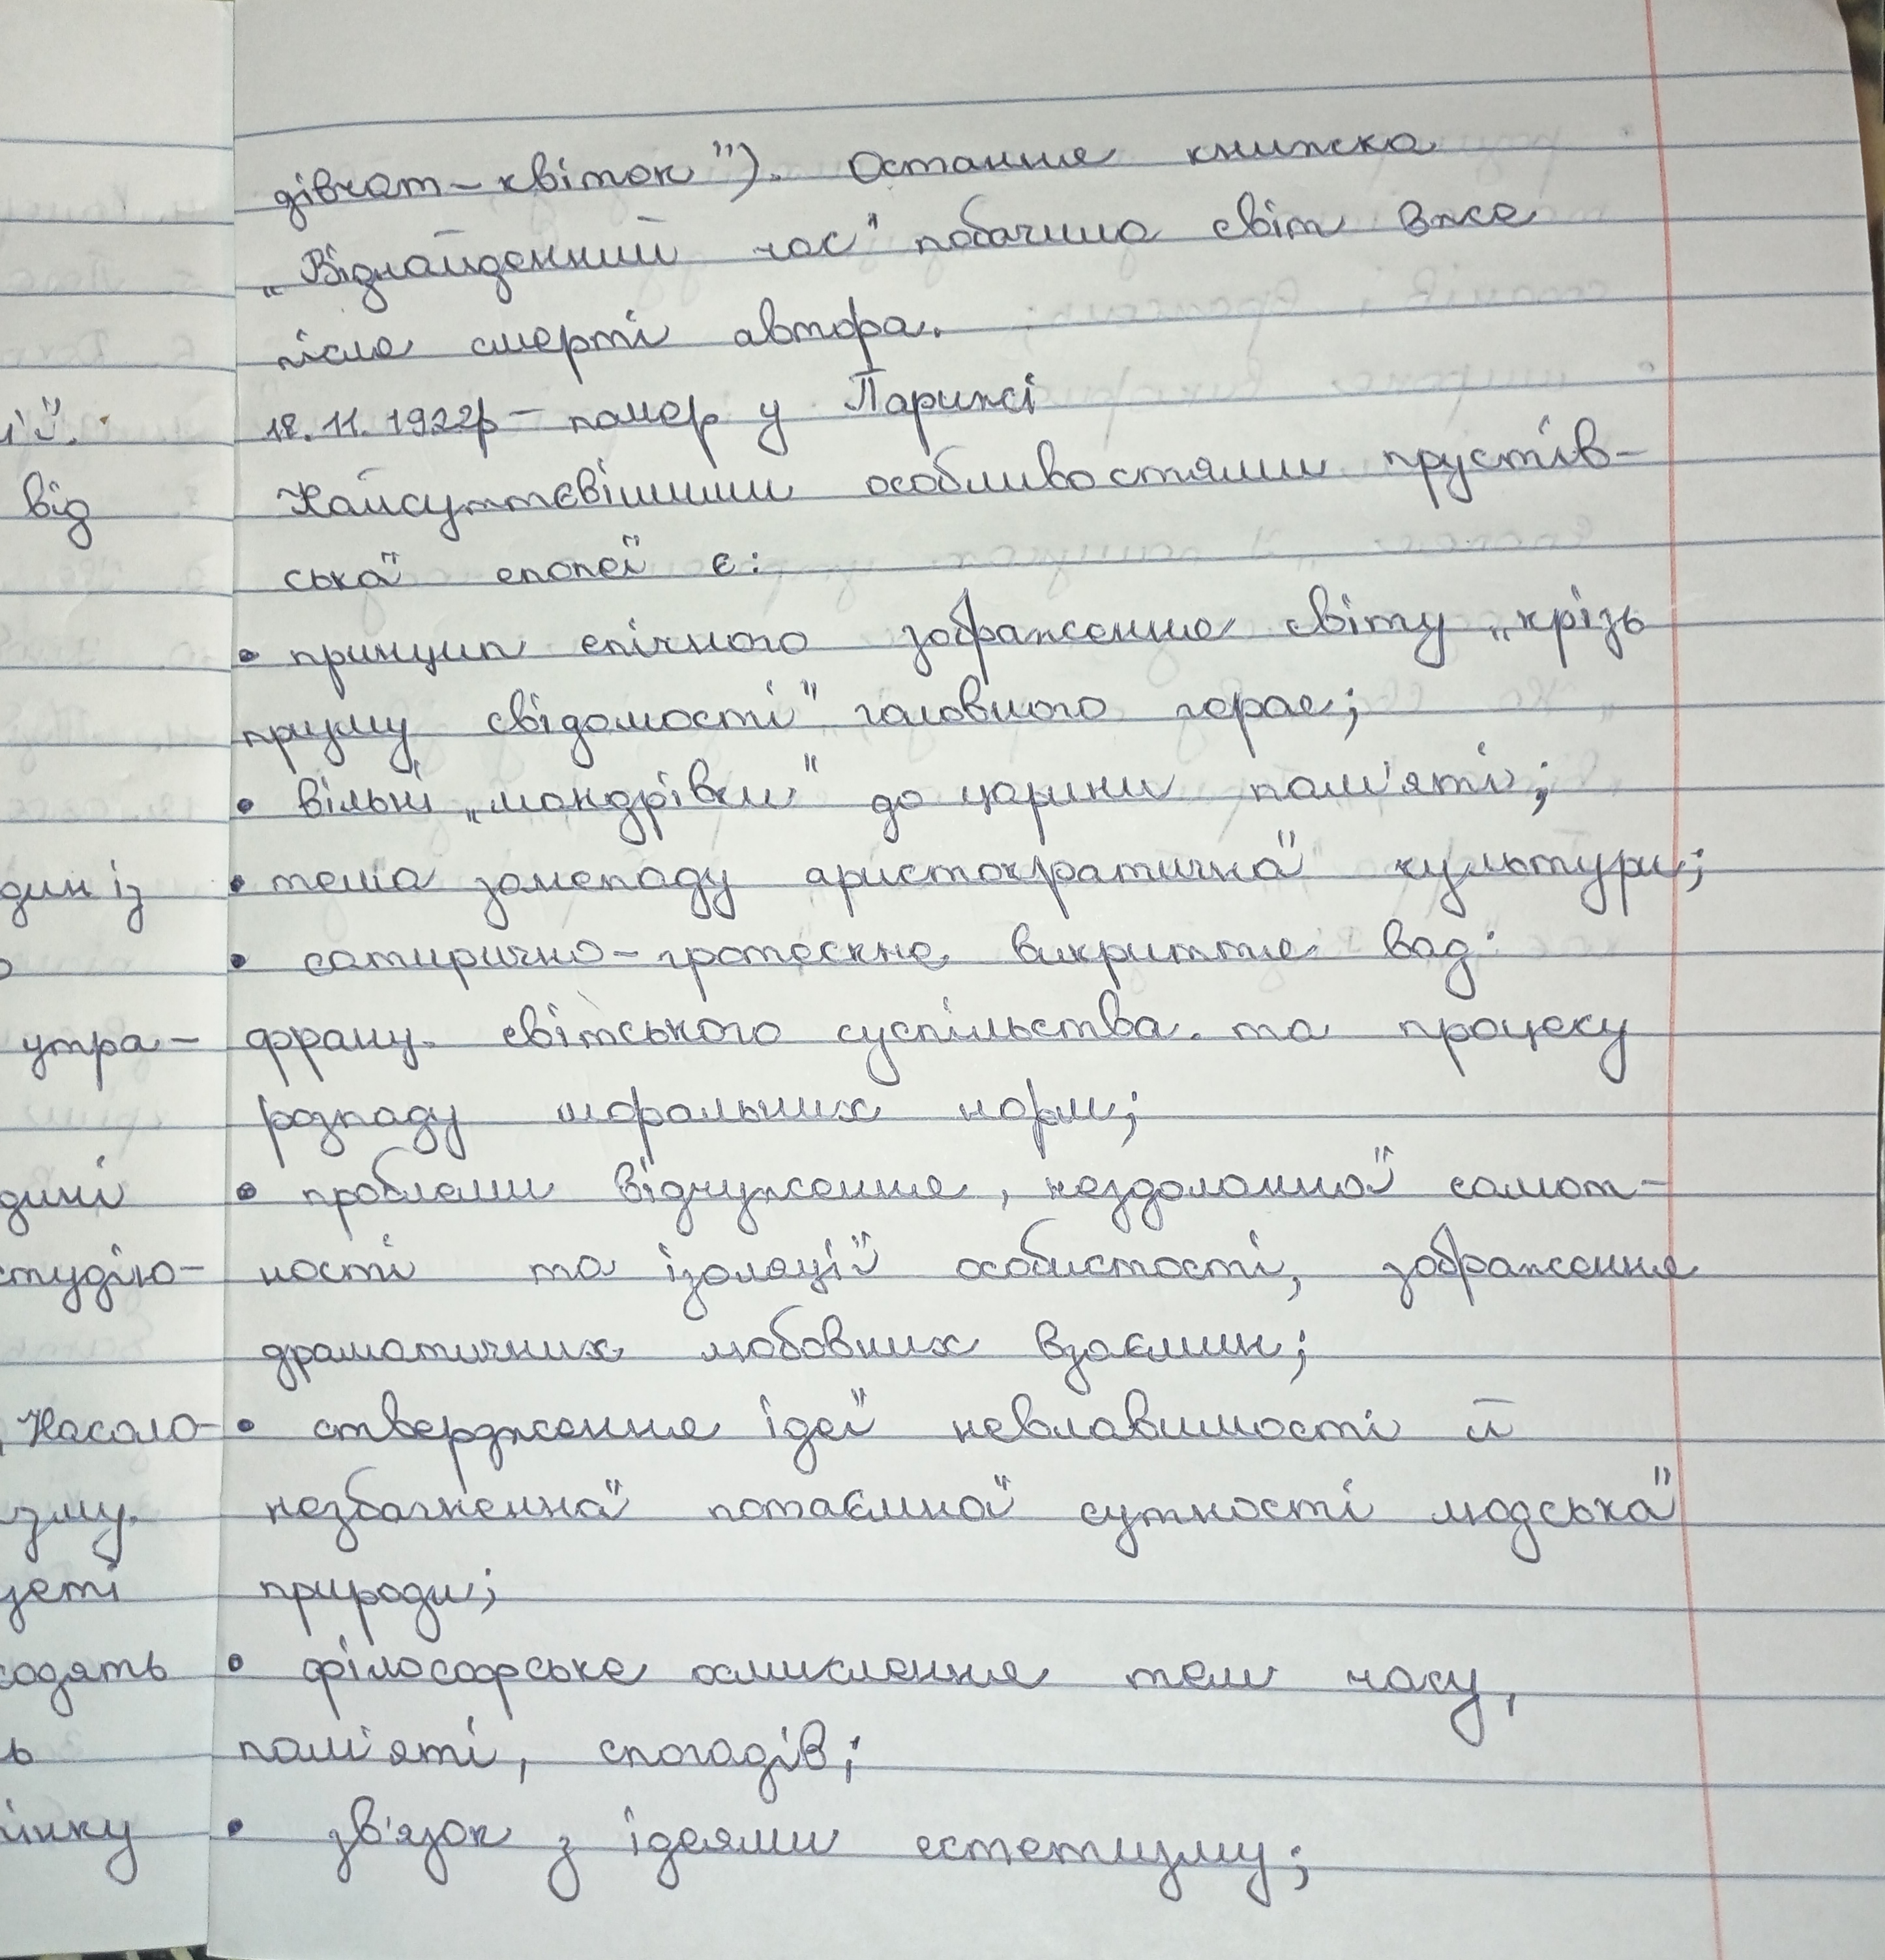 дівчат-квіток"). Остання книжка
„Віднайденний час" побачила світ вже
після смерті автора.
18.11.1922р – помер у Парижі
Найсуттєвішими особливостями прустів-
ської епопеї є:
• принцип епічного зображення світу „крізь
призму свідомості" головного героя;
• вільні „мандрівки" до царини пам'яті;
• тема занепаду аристократичної культури;
• сатирично-гротескне викриття вад
франц. світського суспільства та процесу
розпаду моральних норм;
• проблеми відчуження, нездоланної самот-
ності та ізоляції особистості, зображення
драматичних любовних взаємин;
• ствердження ідеї невловимості й
незбагненної потаємної сутності людської
природи;
• філософське осмислення тем часу,
пам'яті, спогадів;
• зв'язок з ідеями естетизму;
ії.
від
дин із
утра-
дині
студію-
Насоло-
зму.
зеті
содять
ь
інку